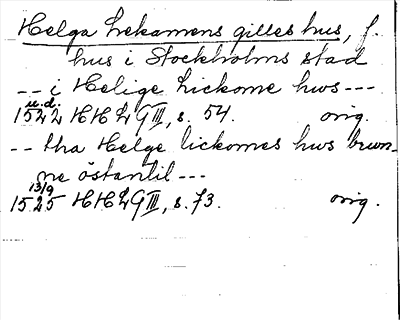 Helga Lekamens gilles hus, f.
hus i Stockholms stad
-- i Helige Lickome hws ---
u.d.
1522 HHLGIII, s. 54. orig.
-- tha Helge lickomes hws brwn-
ne östantil ---
13/9
1525 HHLGIII, s. 73. orig.